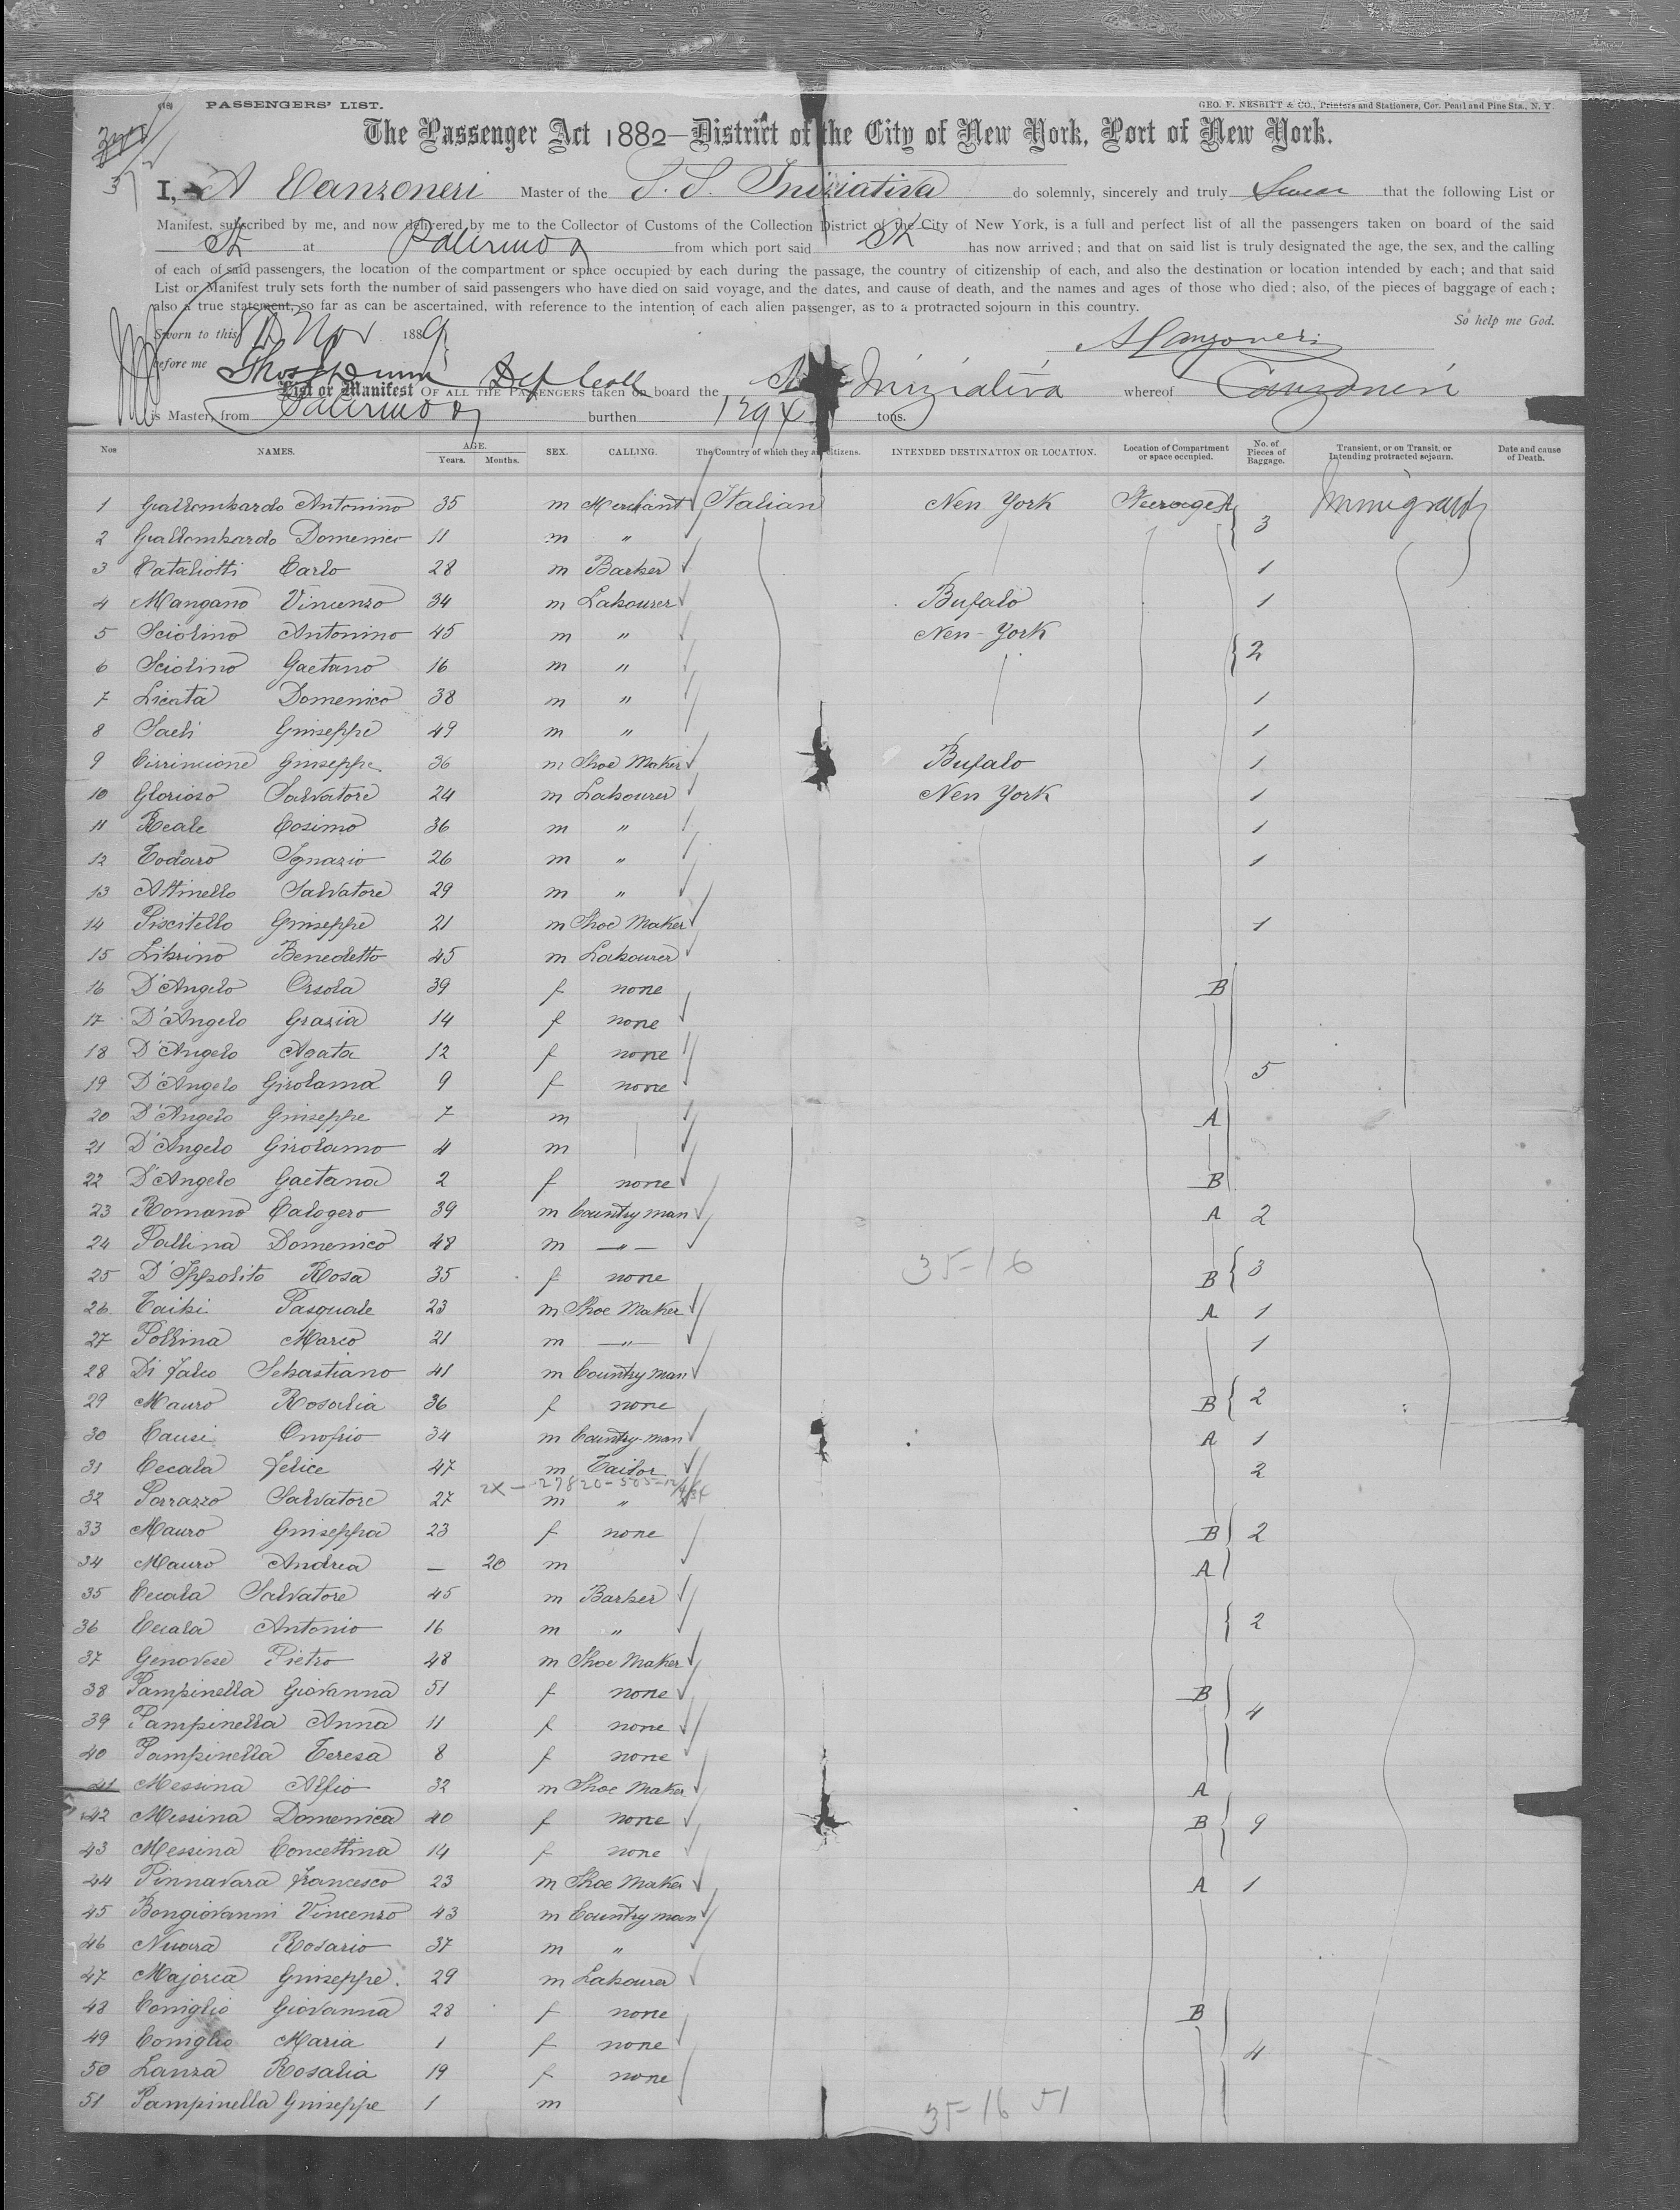 (16) PASSENGERS' LIST. GEO. F. NESBITT & CO., Printers and Stationers, Cor. Pearl and Pine Sts., N. Y.
The Passenger Act 1882—District of the City of New York, Port of New York.
I, A Canzoneri Master of the S. S. Iniziativa do solemnly, sincerely and truly Swear that the following List or
Manifest, subscribed by me, and now delivered by me to the Collector of Customs of the Collection District of the City of New York, is a full and perfect list of all the passengers taken on board of the said
at Palermo from which port said has now arrived; and that on said list is truly designated the age, the sex, and the calling
of each of said passengers, the location of the compartment or space occupied by each during the passage, the country of citizenship of each, and also the destination or location intended by each; and that said
List or Manifest truly sets forth the number of said passengers who have died on said voyage, and the dates, and cause of death, and the names and ages of those who died; also, of the pieces of baggage of each;
also a true statement, so far as can be ascertained, with reference to the intention of each alien passenger, as to a protracted sojourn in this country. So help me God.
Sworn to this Nov 1889
before me Thos Dunn Dep Coll A Canzoneri
List or Manifest OF ALL THE PASSENGERS taken on board the Iniziativa whereof Canzoneri
is Master, from Palermo burthen tons.
Nos NAMES. AGE. Years. Months. SEX. CALLING. The Country of which they are citizens. INTENDED DESTINATION OR LOCATION. Location of Compartment or space occupied. No. of Pieces of Baggage. Transient, or on Transit, or Intending protracted sojourn. Date and cause of Death.
1 Giallombardo Antonino 35 m Merchant Italian New York Steerage A 3 Immigrant
2 Giallombardo Domenico 11 m "
3 Cataliotti Carlo 28 m Barber 1
4 Mangano Vincenzo 34 m Labourer Bufalo 1
5 Sciolino Antonino 45 m " New-York
6 Sciolino Gaetano 16 m " 2
7 Licata Domenico 38 m " 1
8 Saeli Giuseppe 49 m " 1
9 Cirrincione Giuseppe 36 m Shoe Maker Bufalo 1
10 Glorioso Salvatore 24 m Labourer New York 1
11 Reale Cosimo 36 m " 1
12 Todaro Ignazio 26 m " 1
13 Attinello Salvatore 29 m "
14 Piscitello Giuseppe 21 m Shoe Maker 1
15 Librino Benedetto 45 m Labourer
16 D'Angelo Orsola 39 f none B
17 D'Angelo Grazia 14 f none
18 D'Angelo Agata 12 f none
19 D'Angelo Girolama 9 f none 5
20 D'Angelo Giuseppe 7 m A
21 D'Angelo Girolamo 4 m
22 D'Angelo Gaetana 2 f none B
23 Romano Calogero 39 m Country man A 2
24 Pollina Domenico 48 m "
25 D'Ippolito Rosa 35 f none 35-16 B 3
26 Taibi Pasquale 23 m Shoe Maker A 1
27 Pollina Marco 21 m " 1
28 Di Falco Sebastiano 41 m Country man
29 Mauro Rosalia 36 f none B 2
30 Causi Onofrio 34 m Country-man A 1
31 Cecala Felice 47 m Tailor 2
32 Porrazzo Salvatore 27 m "
33 Mauro Giuseppa 23 f none B 2
34 Mauro Andrea — 20 m A
35 Cecala Salvatore 45 m Barber
36 Cecala Antonio 16 m " 2
37 Genovese Pietro 48 m Shoe Maker
38 Pampinella Giovanna 51 f none B
39 Pampinella Anna 11 f none 4
40 Pampinella Teresa 8 f none
41 Messina Alfio 32 m Shoe Maker A
42 Messina Domenica 40 f none B 9
43 Messina Concettina 14 f none
44 Pinnavara Francesco 23 m Shoe Maker A 1
45 Bongiovanni Vincenzo 43 m Country man
46 Nuara Rosario 37 m "
47 Majorca Giuseppe 29 m Labourer
48 Coniglio Giovanna 28 f none B
49 Coniglio Maria 1 f none 4
50 Lanza Rosalia 19 f none
51 Pampinella Giuseppe 1 m
35-16 51